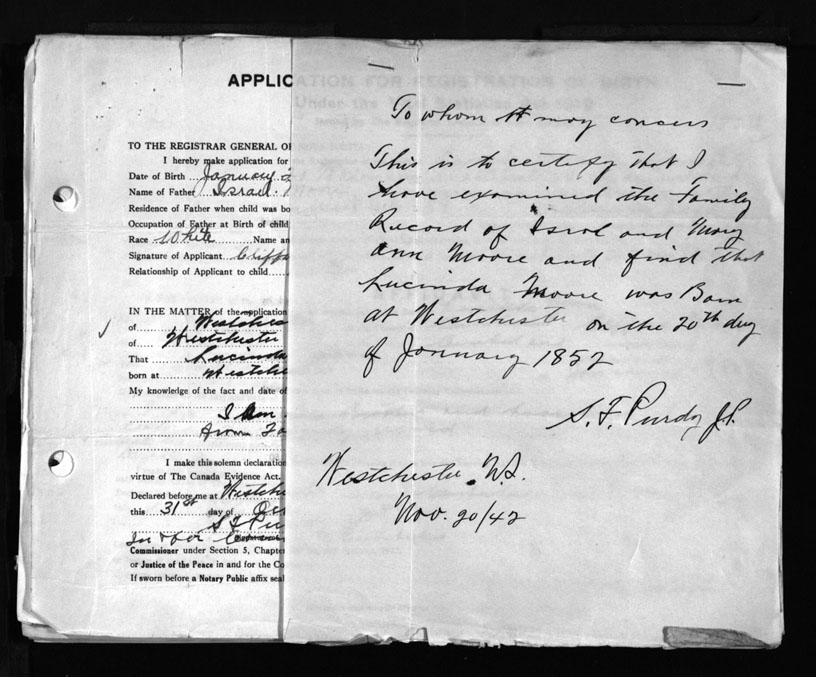 APPLICATION FOR REGISTRATION OF BIRTH
TO THE REGISTRAR GENERAL OF
I hereby make application for
Date of Birth January 2
Name of Father Israel
Residence of Father when child was bo
Occupation of Father at Birth of child
Race White Name an
Signature of Applicant
Relationship of Applicant to child
IN THE MATTER of the application
of Westches
of Westchester
That Lucinda
born at Westche
My knowledge of the fact and date of
I am
from Fa
I make this solemn declaration
virtue of The Canada Evidence Act.
Declared before me at Westch
this 31st day of
S F Pu
In & for
Commissioner under Section 5, Chapte
or Justice of the Peace in and for the Co
If sworn before a Notary Public affix seal
To whom it may concern
This is to certify that I
have examined the Family
Record of Isral and Mary
Ann Moore and find that
Lucinda Moore was Born
at Westchester on the 20th day
of January 1852
S. F. Purdy J.P.
Westchester N.S.
Nov. 20/42